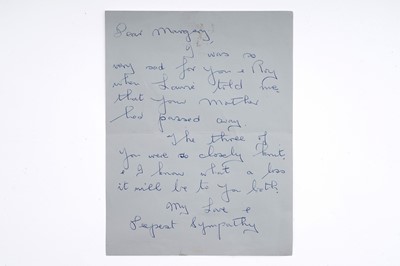 Dear Margery,
I was so
very sad for you & Roy
when Laurie told me
that your Mother
had passed away.
The three of
you were so closely knit,
& I know what a loss
it will be to you both.
My Love &
Deepest Sympathy